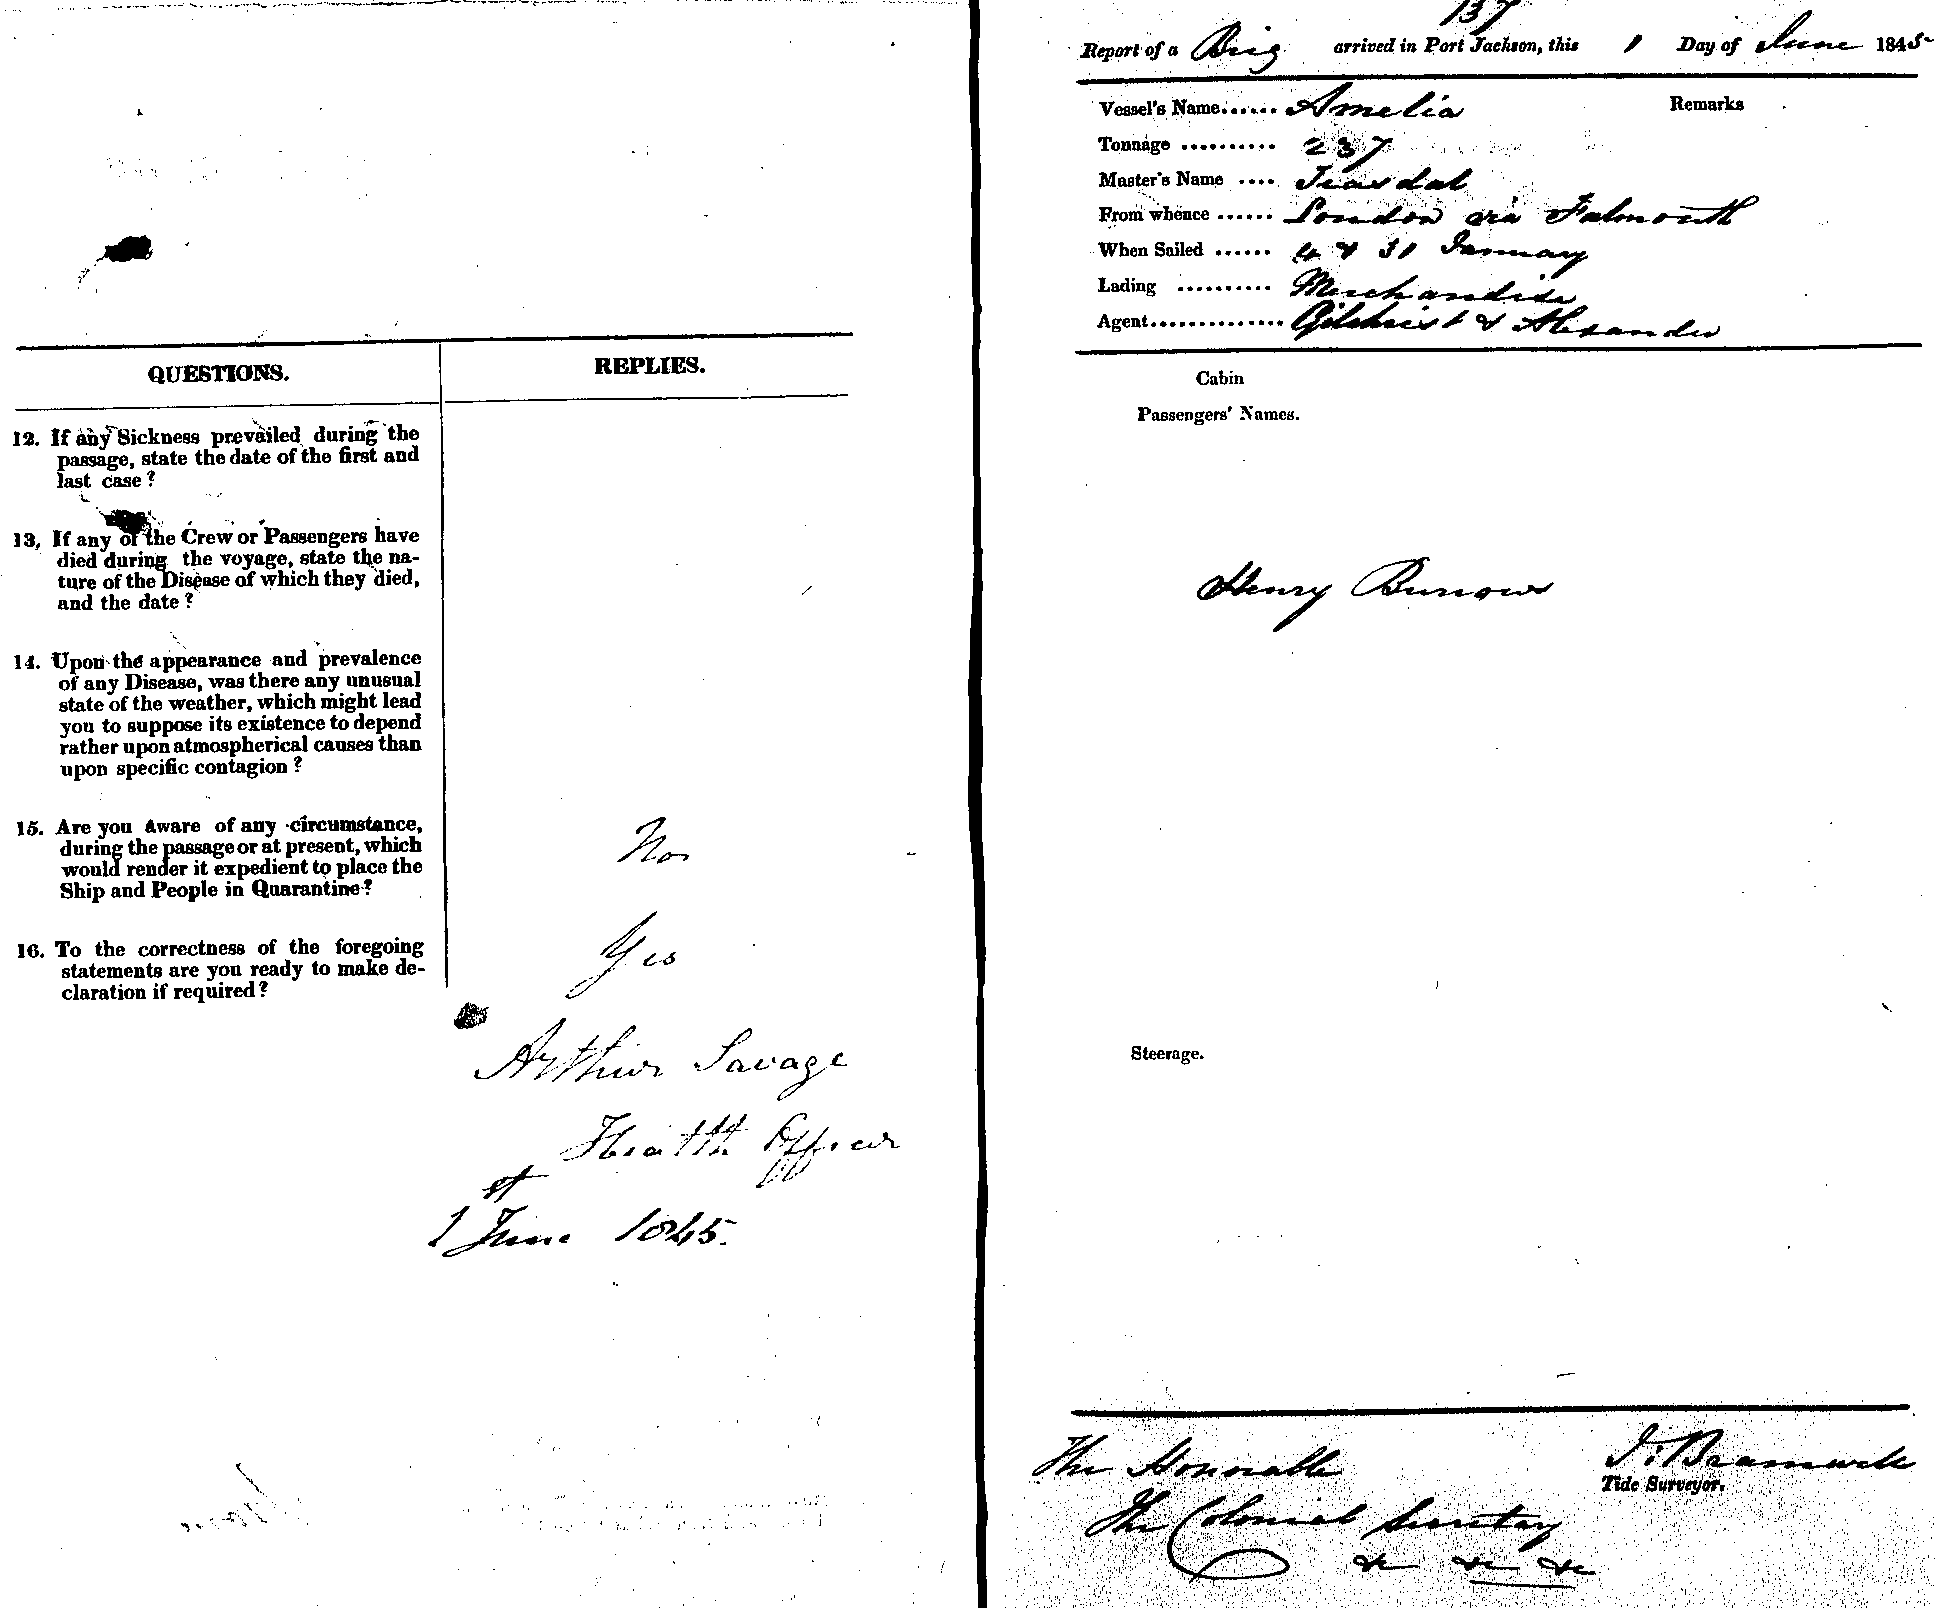 QUESTIONS.
REPLIES.
12. If any Sickness prevailed during the
passage, state the date of the first and
last case ?
13, If any of the Crew or Passengers have
died during the voyage, state the na-
ture of the Disease of which they died,
and the date ?
14. Upon the appearance and prevalence
of any Disease, was there any unusual
state of the weather, which might lead
you to suppose its existence to depend
rather upon atmospherical causes than
upon specific contagion ?
15. Are you Aware of any circumstance,
during the passage or at present, which
would render it expedient to place the
Ship and People in Quarantine ?
No
16. To the correctness of the foregoing
statements are you ready to make de-
claration if required ?
Yes
Arthur Savage
Health Officer
st
1 June 1845.
137
Report of a Brig arrived in Port Jackson, this 1 Day of June 1845
Vessel's Name...... Amelia
Remarks
Tonnage .......... 237
Master's Name .... Teasdal
From whence ...... London via Falmouth
When Sailed ...... 4 & 31 January
Lading .......... Merchandise
Agent............... Gilchrist & Alexander
Cabin
Passengers' Names.
Henry Burrows
Steerage.
The Honorable
The Colonial Secretary
&c &c &c
J. Bramwell
Tide Surveyor.